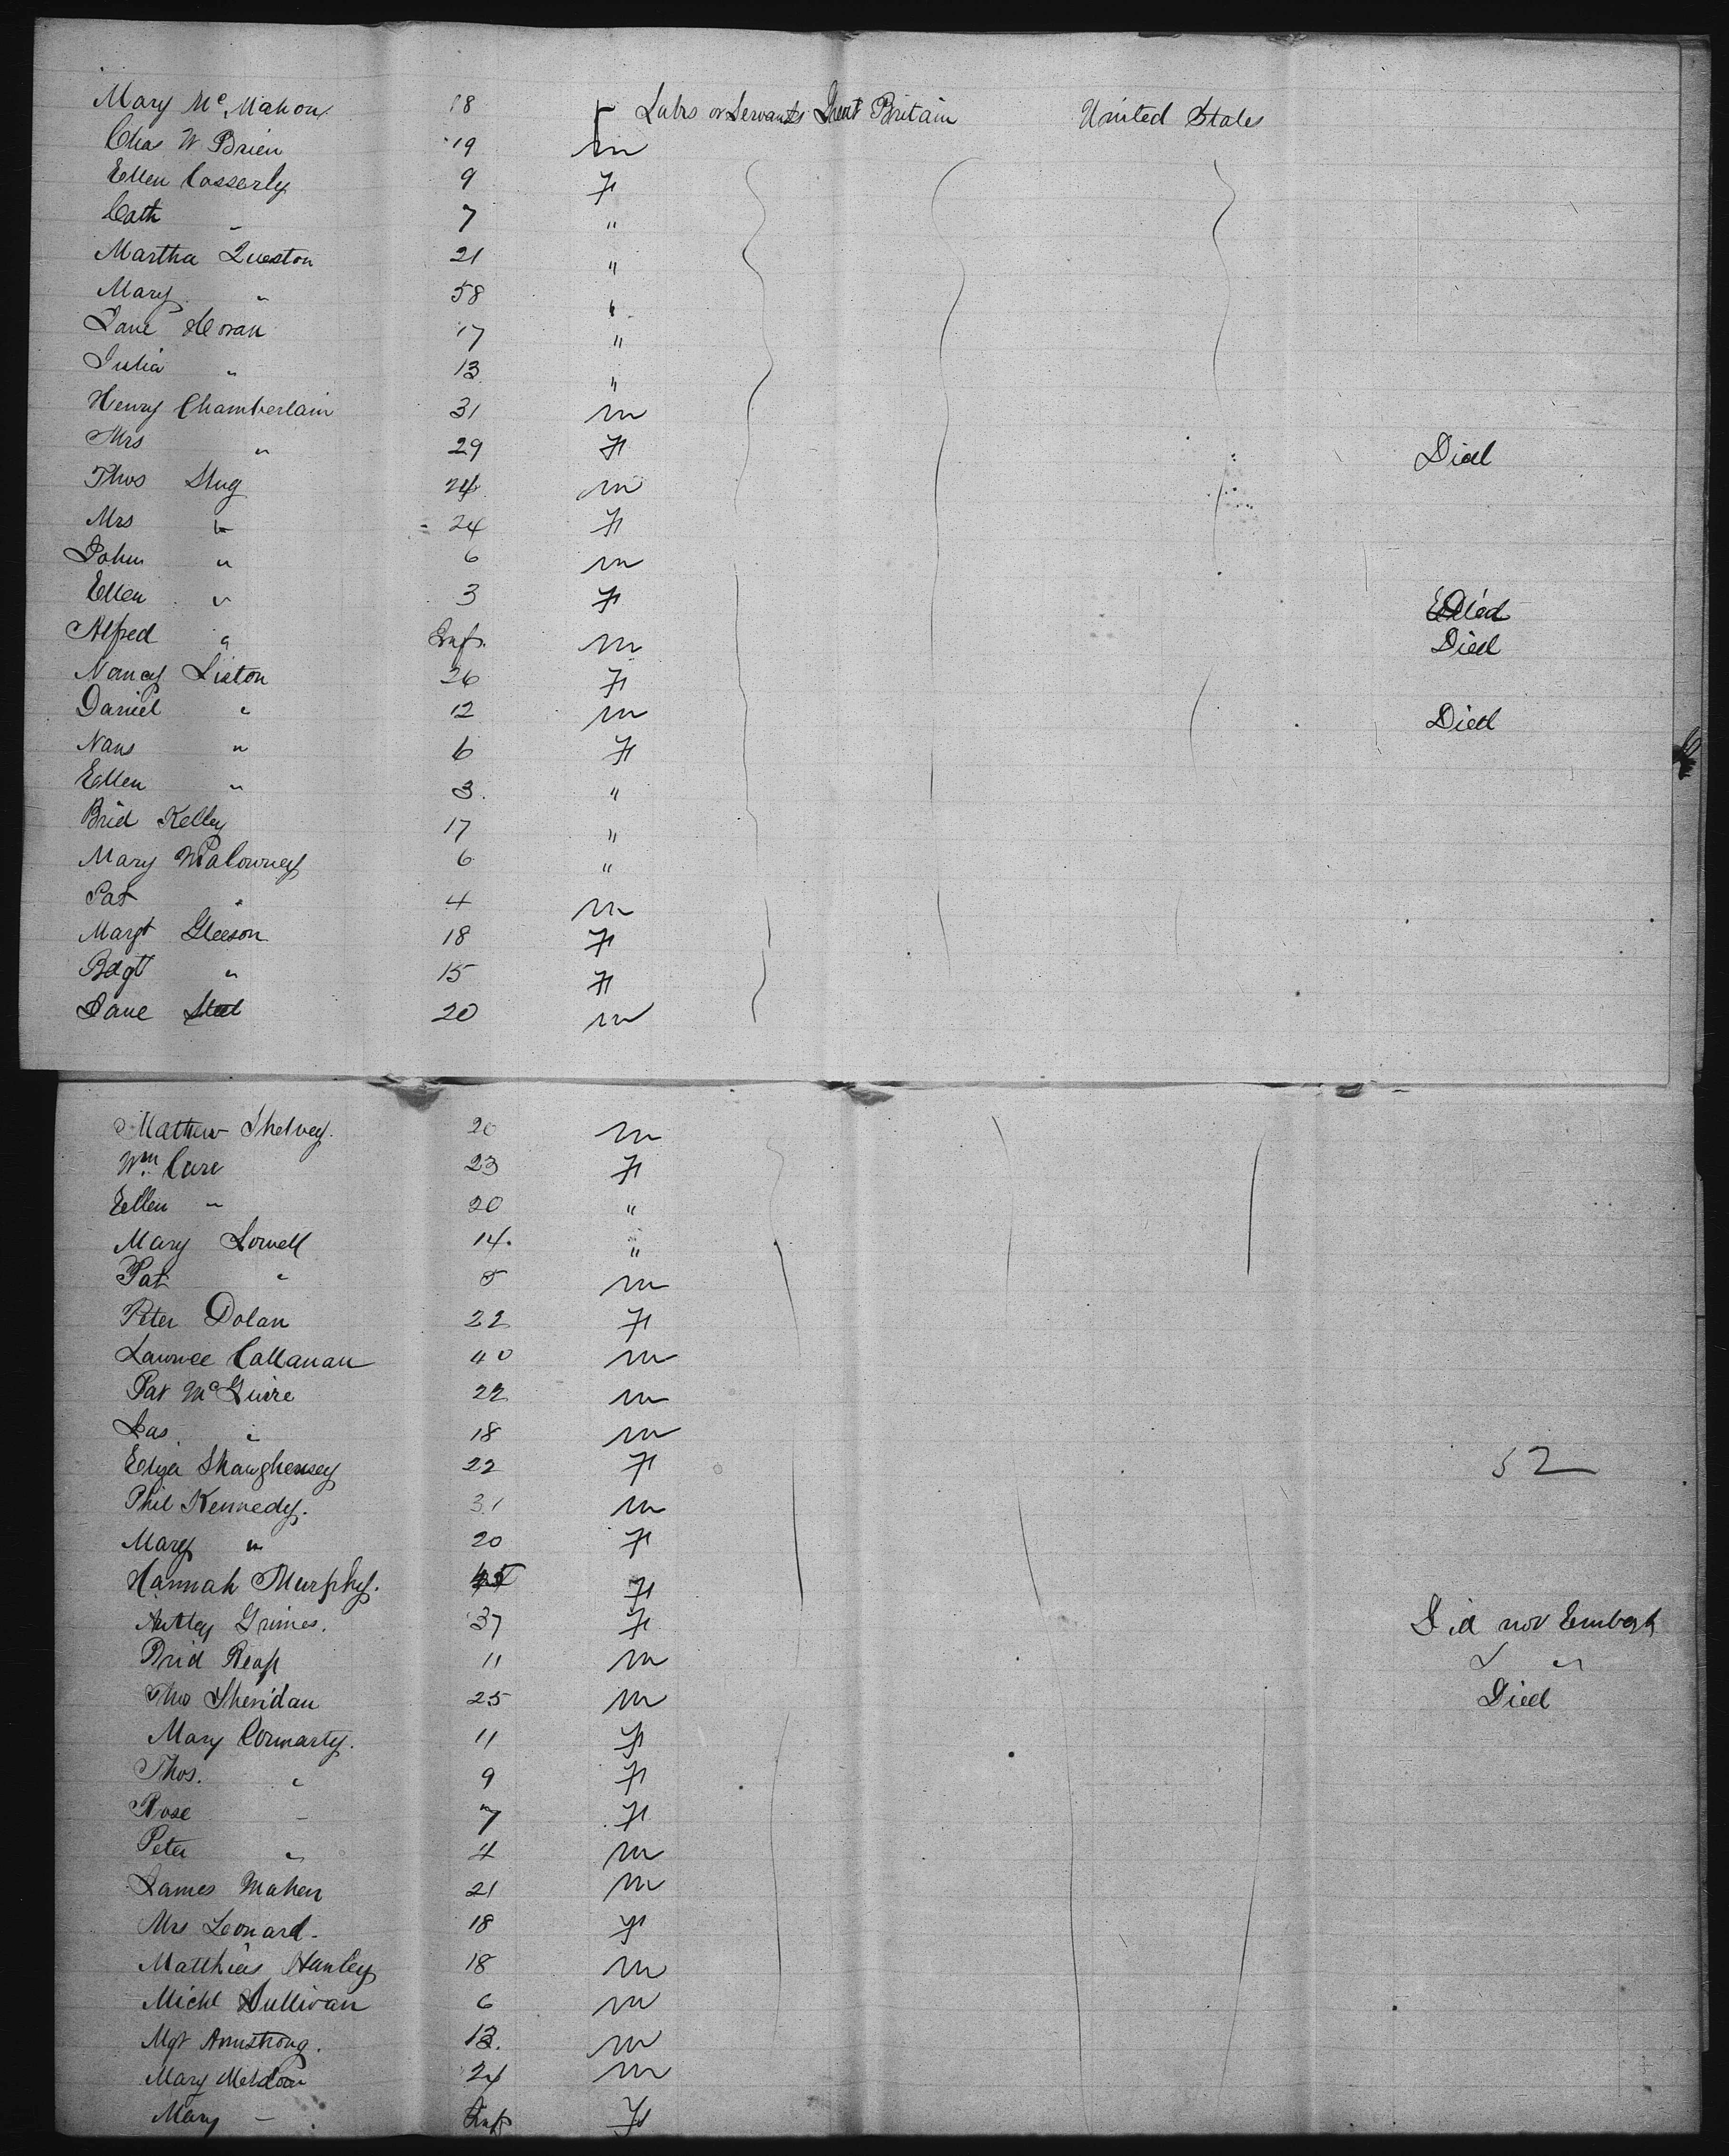 Mary McMahon 18 F Labrs or Servants Great Britain United States
Chas W Brien 19 m
Ellen Casserly 9 F
Cath " 7 "
Martha Queston 21 "
Mary " 58 "
Jane Horan 17 "
Julia " 13 "
Henry Chamberlain 31 m
Mrs " 29 F Died
Thos Slug 24 m
Mrs " 24 F
John " 6 m
Ellen " 3 F Died
Alfred " Inf. m Died
Nancy Liston 26 F
Daniel " 12 m Died
Nans " 6 F
Ellen " 3 "
Brid Kelley 17 "
Mary Malowney 6 "
Pat " 4 m
Margt Gleeson 18 F
Bdgt " 15 F
Jane Steel 20 m
Mathew Shelvey. 20 m
Wm. Care 23 F
Ellen " 20 "
Mary Lowell 14. "
Pat " 5 m
Peter Dolan 22 F
Lawnce Callanan 40 m
Pat McGuire 22 m
Jas " 18 m
Eliza Shaughensey 22 F 52
Phil Kennedy. 31 m
Mary " 20 F
Hannah Murphy. 45 F
Grimes. 37 F Did not Embark
Brid 11 m " "
Tho Sheridan 25 m Died
Mary Cormarty. 11 F
Thos. " 9 F
Rose " 7 F
Peter " 4 m
James Maher 21 m
Mrs Leonard 18 F
Matthias Hanley 18 m
Michl Sullivan 6 m
Mgt Armstrong. 13. m
Mary 24 m
Mary " Inf F